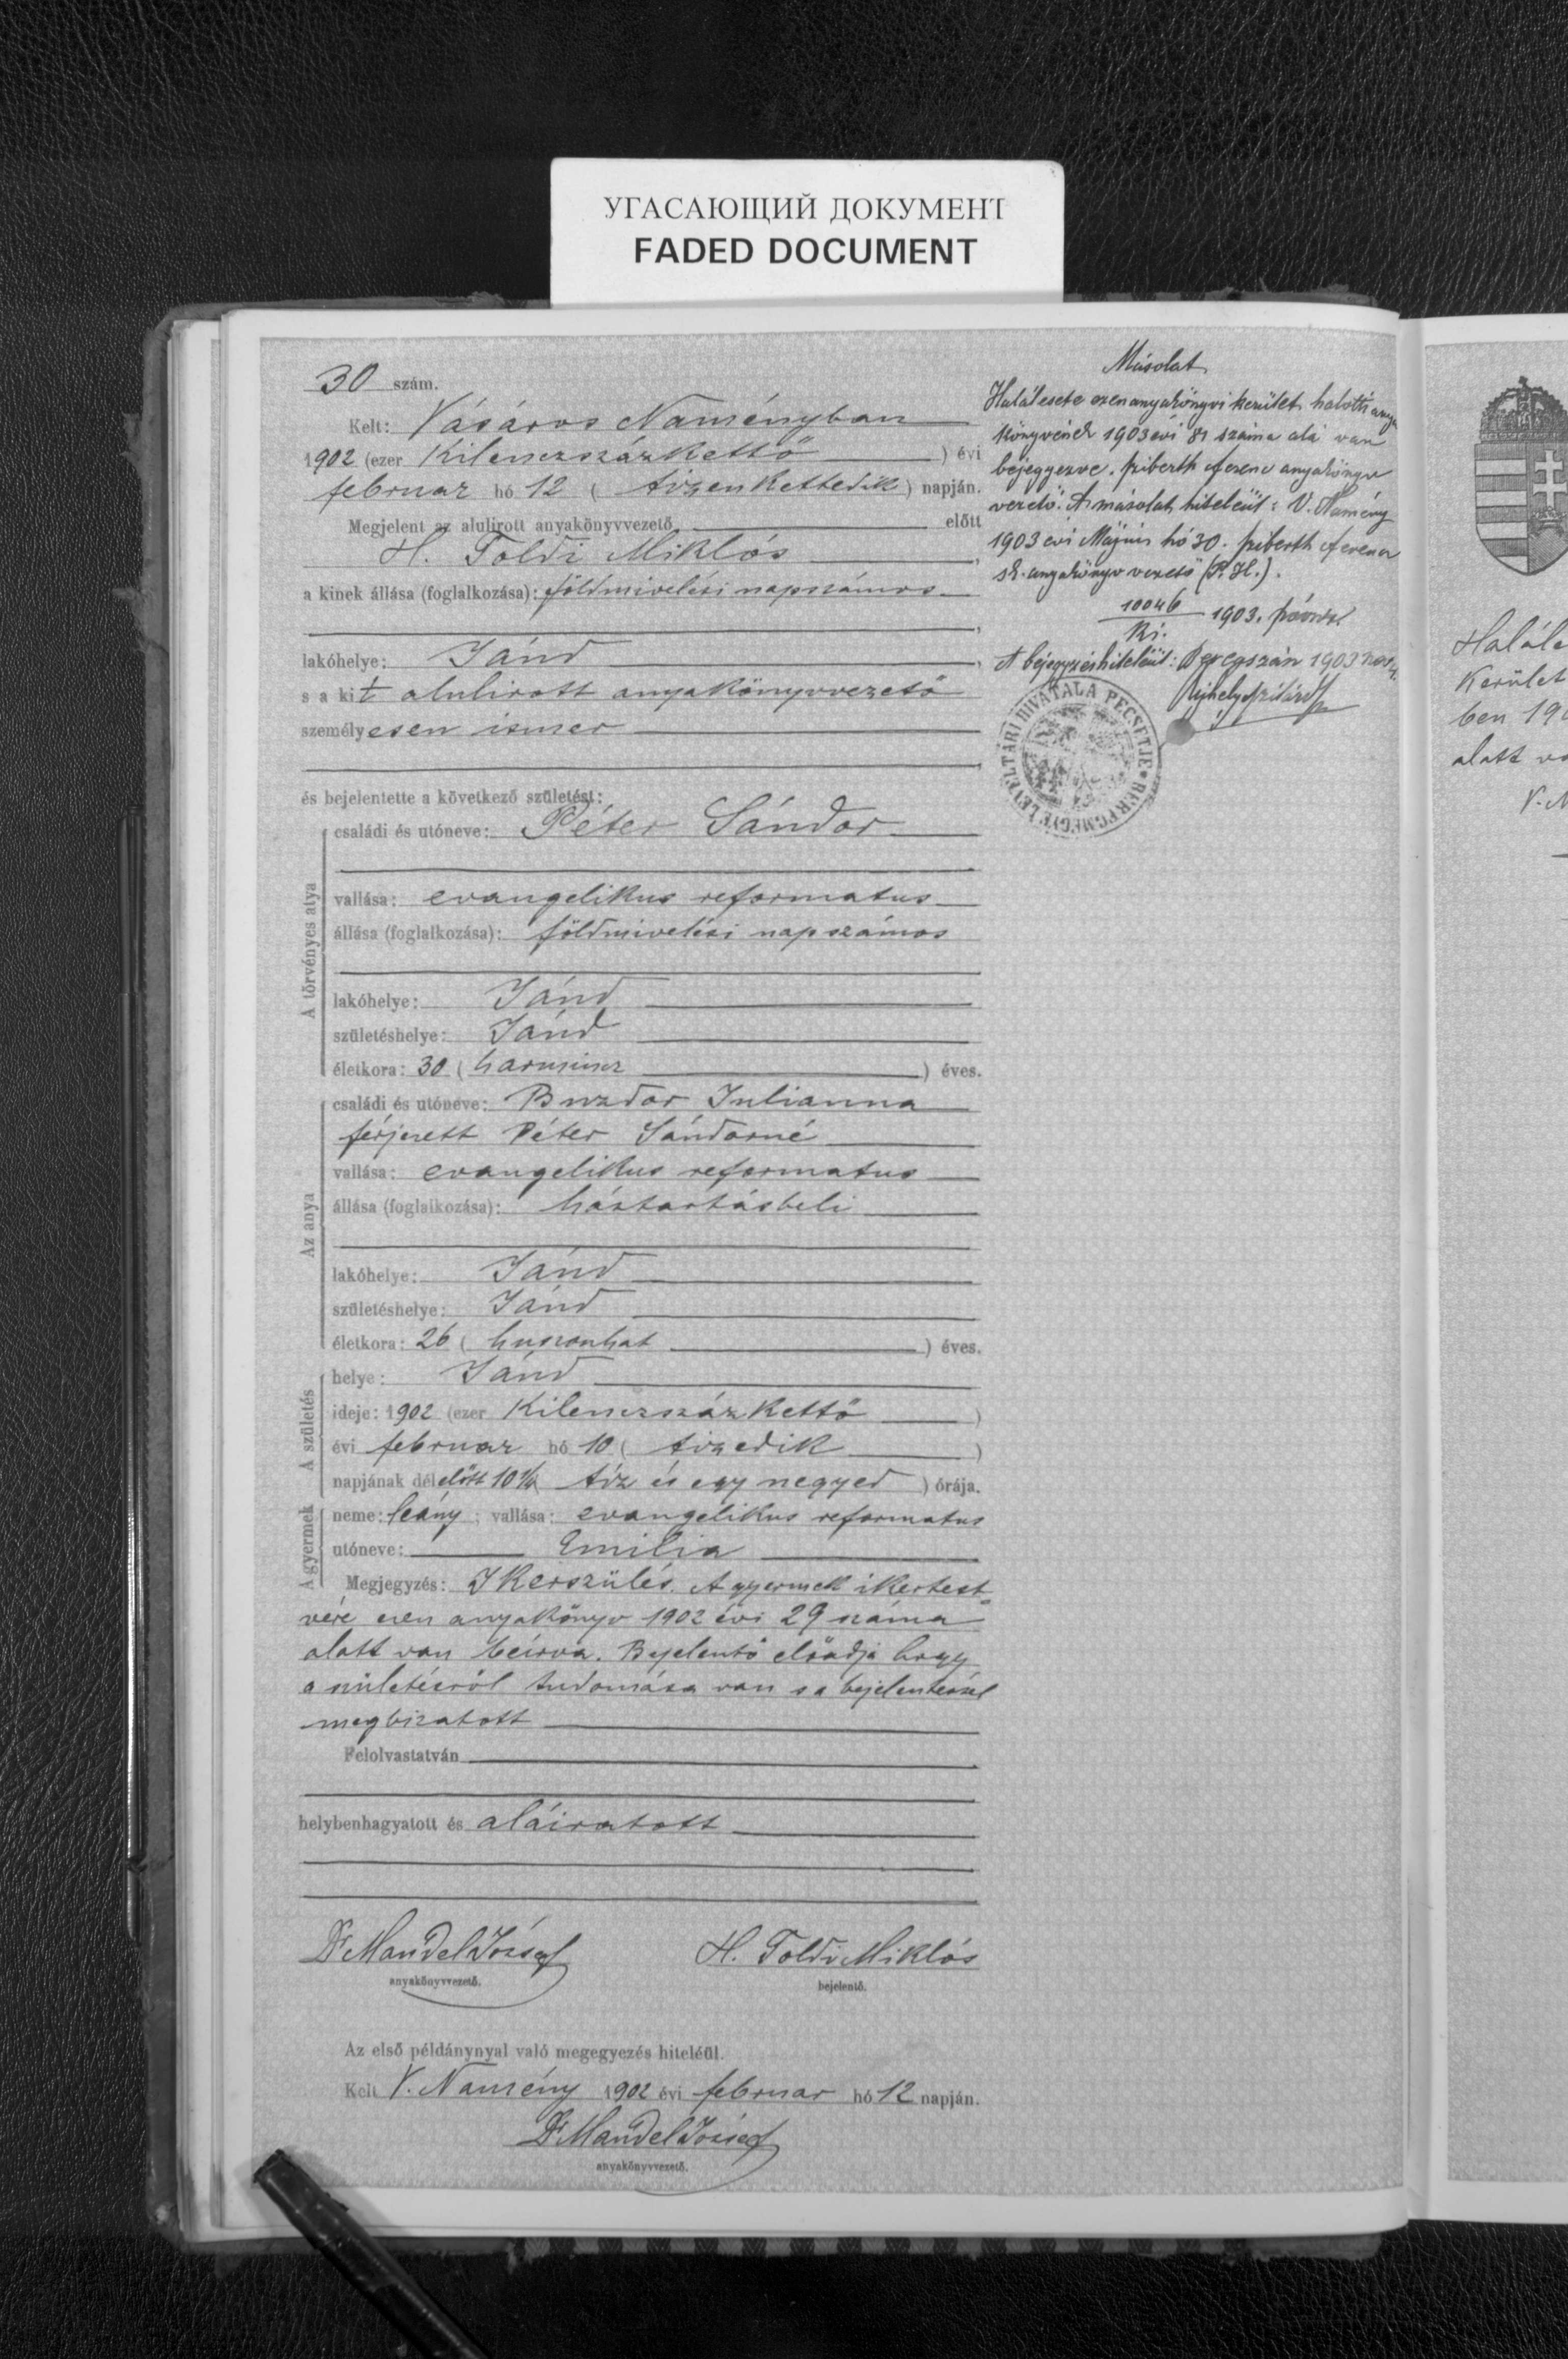 УГАСАЮЩИЙ ДОКУМЕНТ
FADED DOCUMENT
30 szám.
Kelt: Vásáros Naményban
1902 (ezer Kilenczszázkettő ) évi
februar hó 12 ( tizenkettedik ) napján.
Megjelent az alulirott anyakönyvvezető előtt
H. Toldi Miklós ,
a kinek állása (foglalkozása): földmivelési napszámos
,
lakóhelye: Jánd ,
s a kit alulirott anyakönyvvezető
személyesen ismer
,
és bejelentette a következő születést:
A törvényes atya
családi és utóneve: Péter Sándor
vallása: evangelikus reformatus
állása (foglalkozása): földmivelési napszámos
lakóhelye: Jánd
születéshelye: Jánd
életkora: 30 ( harmincz ) éves.
Az anya
családi és utóneve: Buzdor Julianna
férjezett Péter Sándorné
vallása: evangelikus reformatus
állása (foglalkozása): háztartásbeli
lakóhelye: Jánd
születéshelye: Jánd
életkora: 26 ( huszonhat ) éves.
A születés
helye: Jánd
ideje: 1902 (ezer Kilenczszázkettő )
évi februar hó 10 ( tizedik )
napjának délelőtt 10 1/4 tíz és egy negyed ) órája.
A gyermek
neme: leány ; vallása: evangelikus reformatus
utóneve: Emilia
Megjegyzés: Ikerszülés. A gyermek ikertest-
vére ezen anyakönyv 1902 évi 29 száma
alatt van beirva. Bejelentő előadja hogy
a születésről tudomása van s a bejelentéssel
megbizatott
Felolvastatván
helybenhagyatott és aláiratott
Dr Mandel József
anyakönyvvezető.
H. Toldi Miklós
bejelentő.
Az első példánynyal való megegyezés hiteléül.
Kelt V. Namény 1902 évi februar hó 12 napján.
Dr Mandel József
anyakönyvvezető.
Másolat
Halálesete ezen anyakönyvi kerület halotti anya
könyvének 1903 évi 81 száma alá van
bejegyezve. Ferenc anyakönyv
vezető. A másolat hiteléül: V. Namény
1903 évi Május hó 30. Ferencz
sk. anyakönyvvezető (P. H.).
10046
ki. 1903.
A bejegyzés hiteléül: Beregszász 1903
LEVÉLTÁRI HIVATALA PECSÉTJE * BEREGMEGYE
Halále
kerület
ben 190
alatt va
V. N